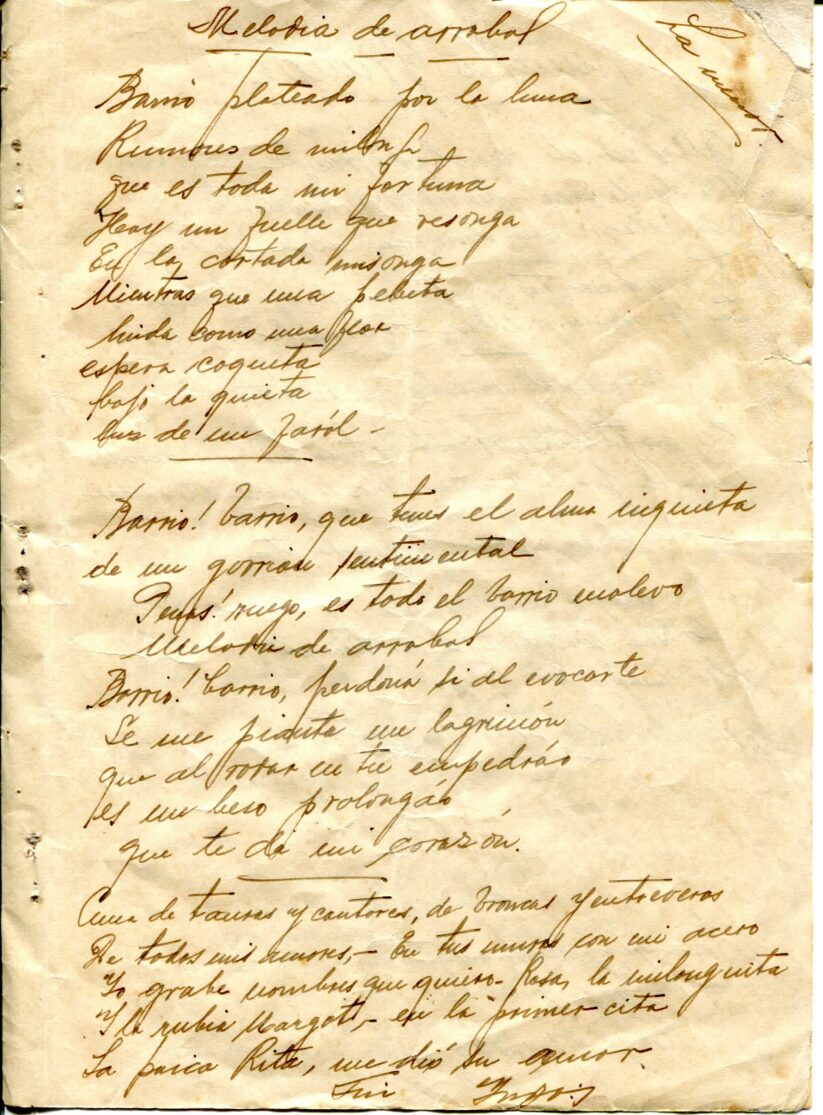 Melodia de arrabal
La menor
Barrio plateado por la luna
Rumores de milonga
que es toda mi fortuna
Hay un fuelle que resonga
En la cortada misonga
Mientras que una pebeta
linda como una flor
espera coqueta
bajo la quieta
luz de un faról -
Barrio! barrio, que tenes el alma inquieta
de un gorrión sentimental
Penas! ruego, es todo el barrio malevo
Melodia de arrabal
Barrio! barrio, perdoná si al evocarte
Se me pianta un lagrimón
que al rodar en tu empedráo
es un beso prolongáo
que te dá mi corazón.
Cuna de tauras y cantores, de broncas y entreveros
De todos mis amores,- En tus muros con mi acero
Yo grabe nombres que quiero- Rosa, la milonguita
Y la rubia Margot,- en la primer cita
La paica Rita, me dió su amor.
Fin